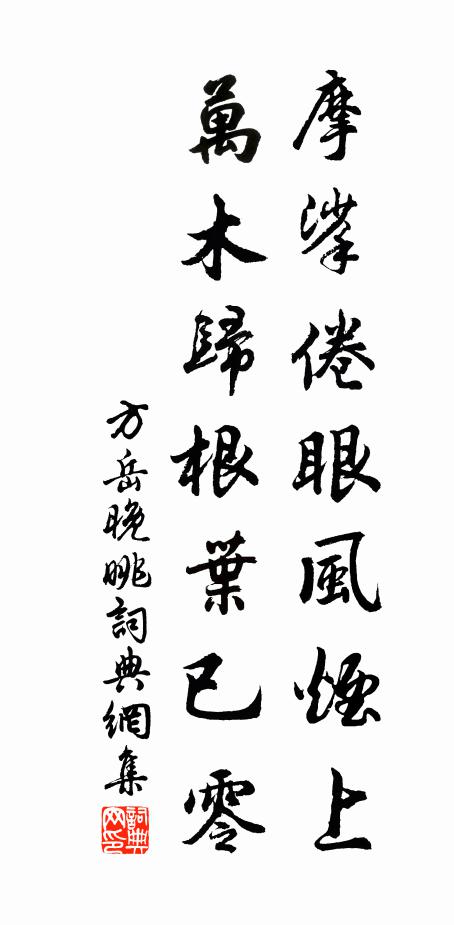 摩挲倦眼風煙上
萬木歸根葉已零
方岳晚眺詞典網集
詞典
网印